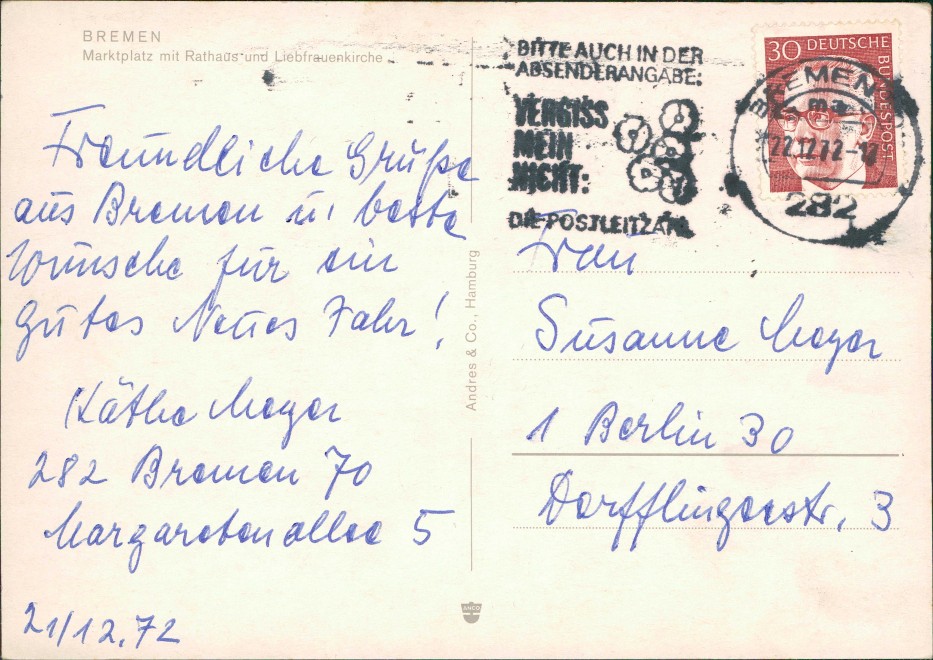 BREMEN
Marktplatz mit Rathaus und Liebfrauenkirche
Freundliche Grüße
aus Bremen u. beste
Wünsche für ein
gutes Neues Jahr!
Käthe Meyer
282 Bremen 70
Margaretenallee 5
21/12.72
Andres & Co., Hamburg
ANCO
BITTE AUCH IN DER
ABSENDERANGABE:
VERGISS
MEIN
NICHT:
DIE POSTLEITZAHL
30 DEUTSCHE
BUNDESPOST
BREMEN
22.12.72-12
282
Frau
Susanne Meyer
1 Berlin 30
Dorfflingerstr. 3